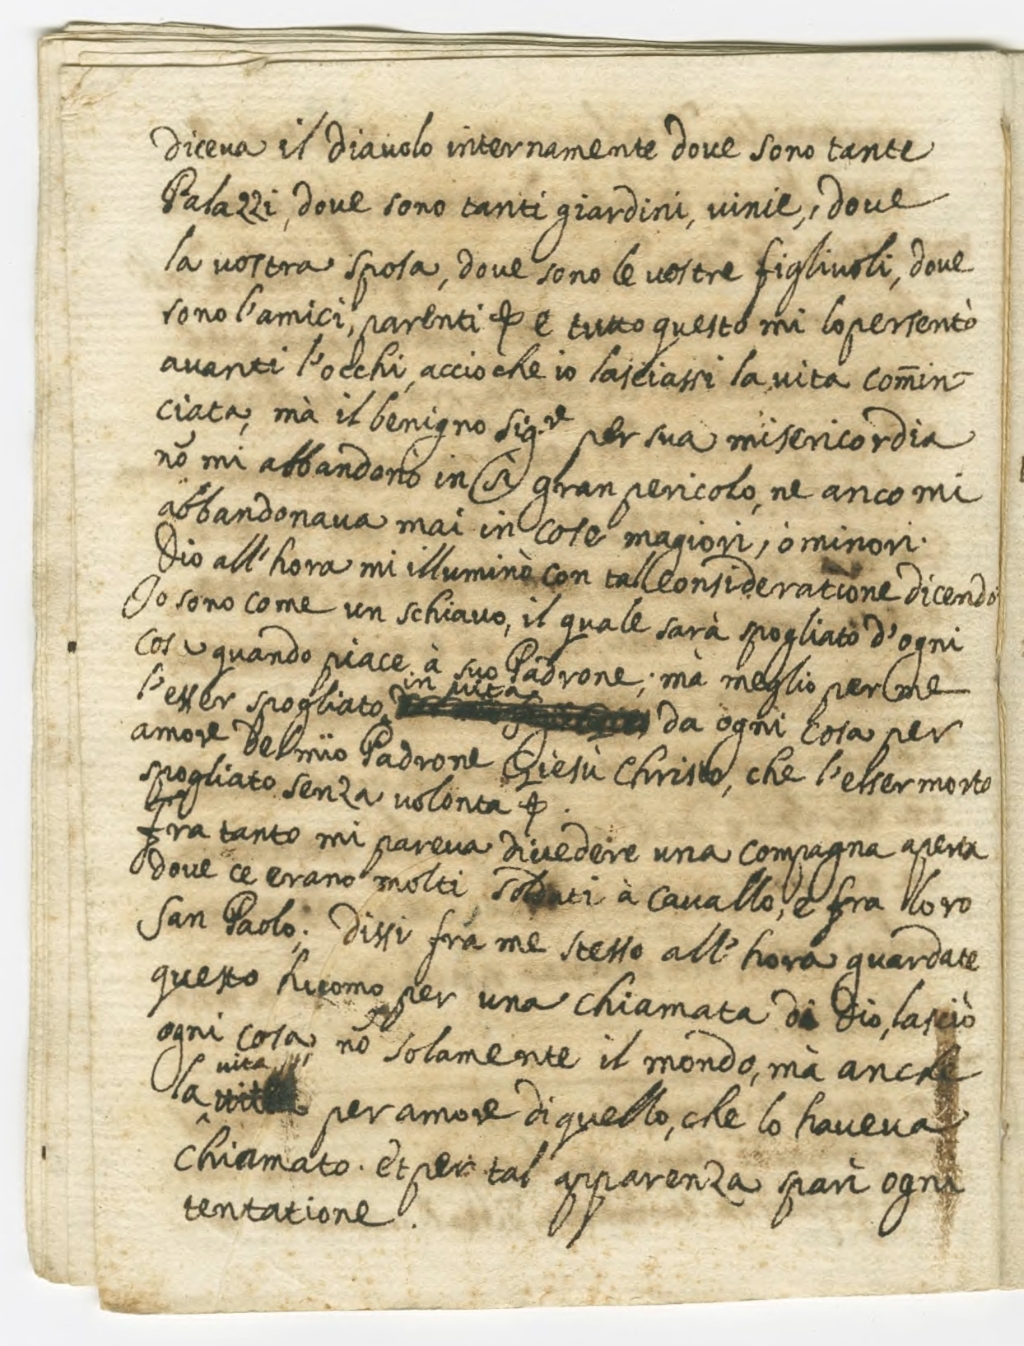 diceua il diauolo internamente doue sono tante
Palazzi, doue sono tanti giardini, vinie, doue
la vostra sposa, doue sono le vostre figliuoli, doue
sono l'amici, parenti & e tutto questo mi lopersentò
auanti l'occhi, accioche io lasciassi la vita com̄in-
ciata, mà il benigno Sig.re per sua misericordia
nō mi abbandonò in sì gran pericolo, ne anco mi
abbandonaua mai in cose magiori, ò minori.
Dio all'hora mi illuminò con tal consideratione dicendo
Io sono come un schiauo, il quale sarà spogliato d'ogni
cosa quando piace à suo Padrone; mà meglio per me
l'esser spogliato in vita da ogni cosa per
amore del mio Padrone Giesù Christo, che l'esser morto
spogliato senza volonta &.
fra tanto mi pareua diuedere una compagna aperta
doue ce erano molti soldati à cauallo, e fra loro
San Paolo; dissi fra me stesso all'hora guardate
questo huomo per una chiamata di Dio, lasciò
ogni cosa, nō solamente il mondo, mà anche
la vita per amore di quello, che lo haueua
chiamato. et per tal apparenza sparì ogni
tentatione.